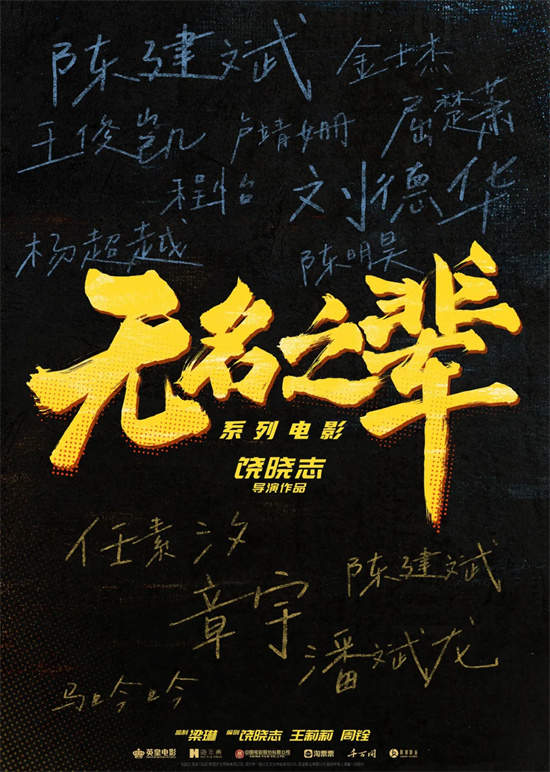 陈建斌 金士杰
王俊凯 卢靖姗 屈楚萧
程怡 刘德华
杨超越 陈明昊
无名之辈
系列电影
饶晓志
导演作品
任素汐 陈建斌
章宇 潘斌龙
马吟吟
监制 梁琳 编剧 饶晓志 王莉莉 周铨
英皇电影 中国电影股份有限公司 淘票票 千万间